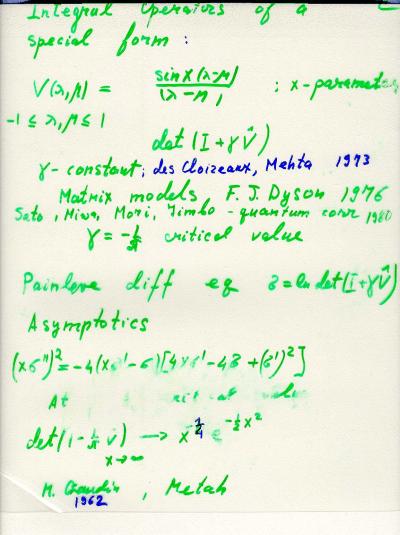 Integral Operators of a
special form:
V(λ,μ) = sin x(λ-μ) / (λ-μ) ; x-parameter
-1 ≤ λ,μ ≤ 1
det (I + γV̂)
γ-constant; des Cloizeaux, Mehta 1973
Matrix models F. J. Dyson 1976
Sato, Miwa, Mori, Jimbo - quantum corr 1980
γ = -1/π critical value
Painleve diff eq б = ln det(I+γV̂)
Asymptotics
(xб'')² = -4(xб'-б)[4xб'-4б+(б')²]
At value
det(1 - 1/π V̂) → e^{-1/2 x²}
x→∞
M. Gaudin, Metah
1962